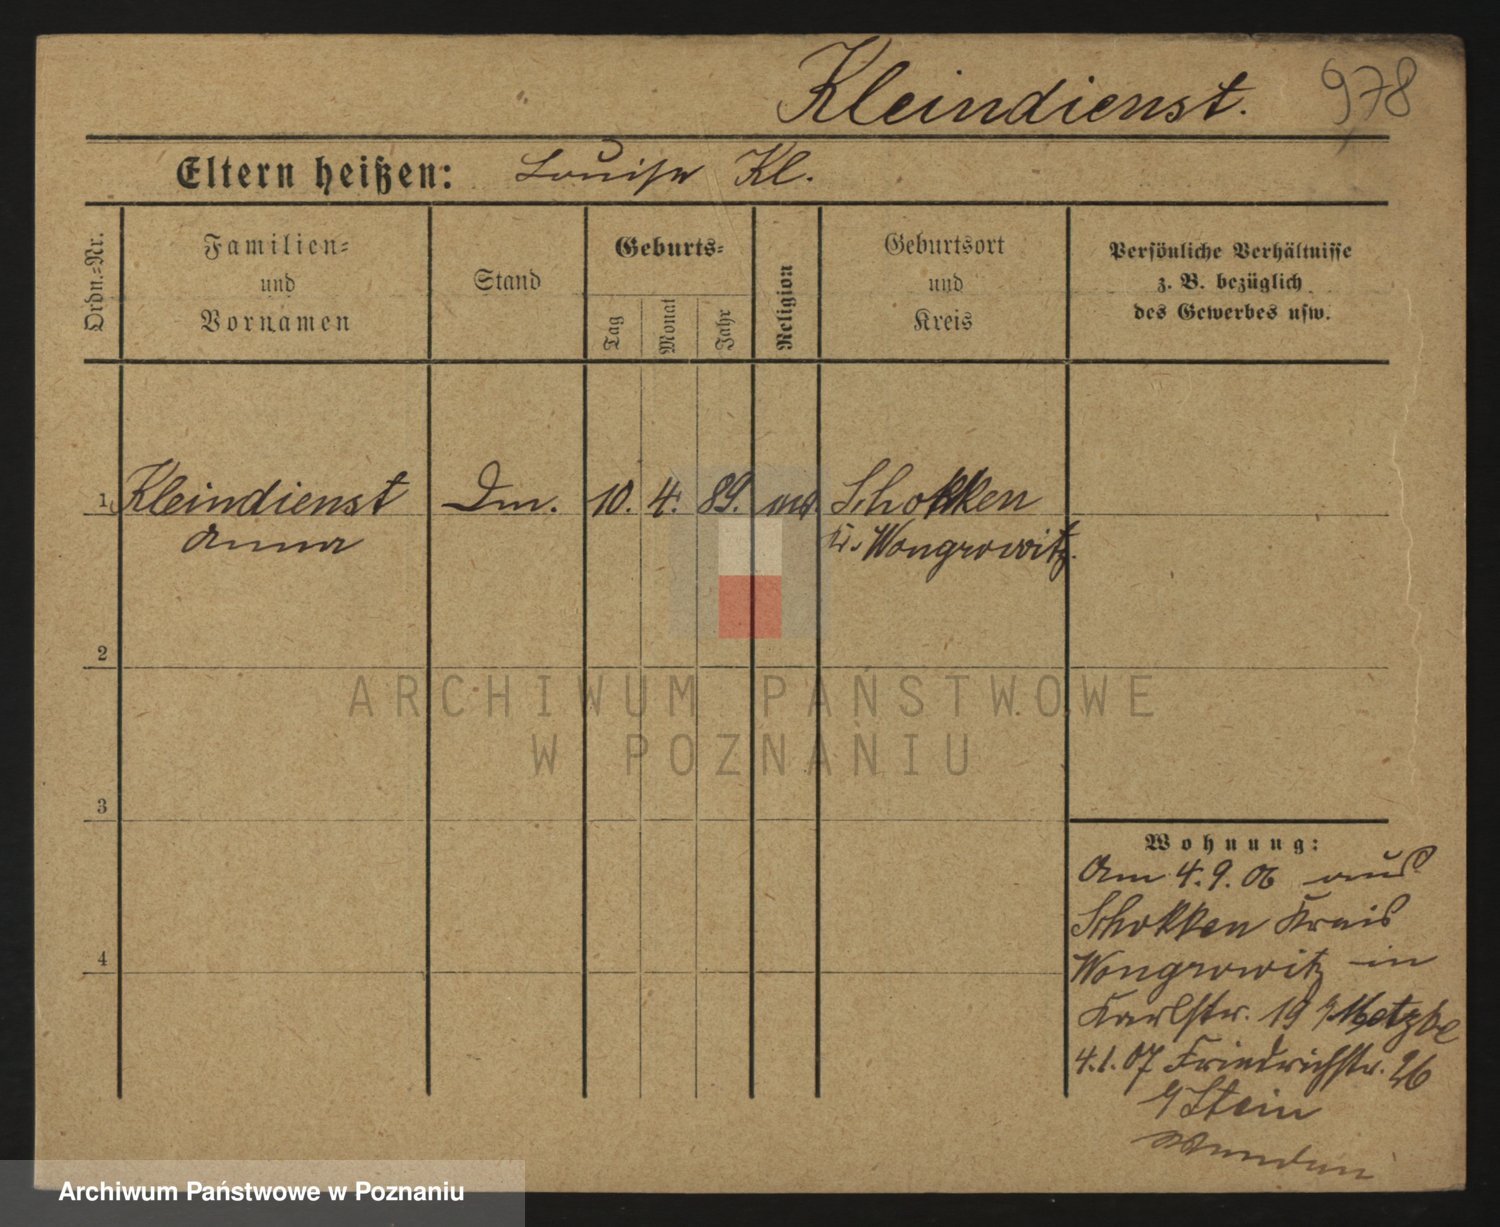 Kleindienst.
978
Eltern heißen: Louise Kl.
Ordn.=Nr.
Familien=
und
Vornamen
Stand
Geburts=
Tag
Monat
Jahr
Religion
Geburtsort
und
Kreis
Persönliche Verhältnisse
z. B. bezüglich
des Gewerbes usw.
1 Kleindienst 10. 4. 89. Schokken
Anna Kr. Wongrowitz.
2
3
4
Wohnung:
Am 4.9.06 aus
Schokken Kreis
Wongrowitz in
Karlstr. 19
4.1.07 Friedrichstr. 26
Stein
ARCHIWUM PAŃSTWOWE
W POZNANIU
Archiwum Państwowe w Poznaniu